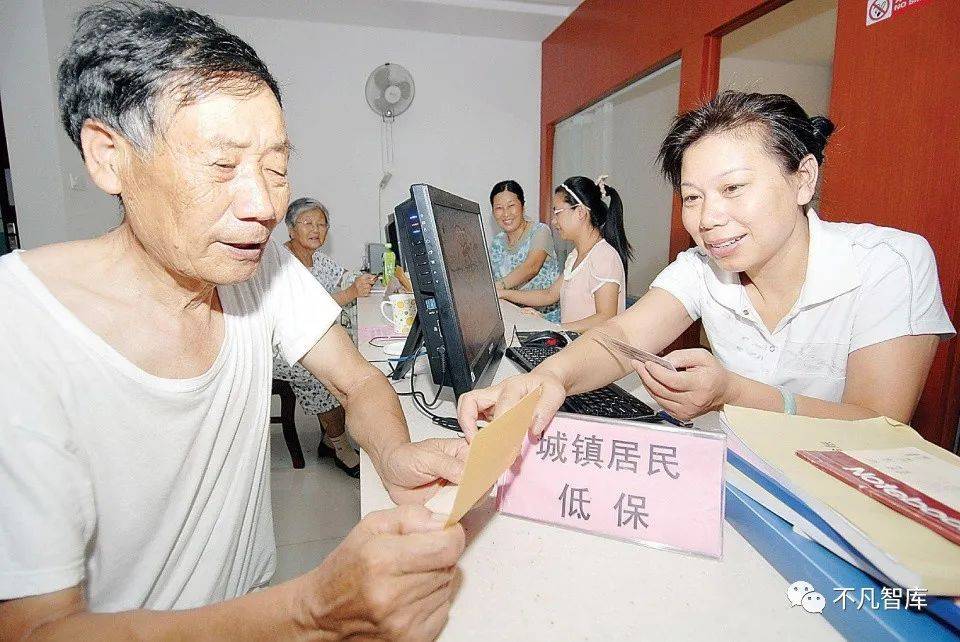 NO SM
城镇居民
低保
Notebook
不凡智库